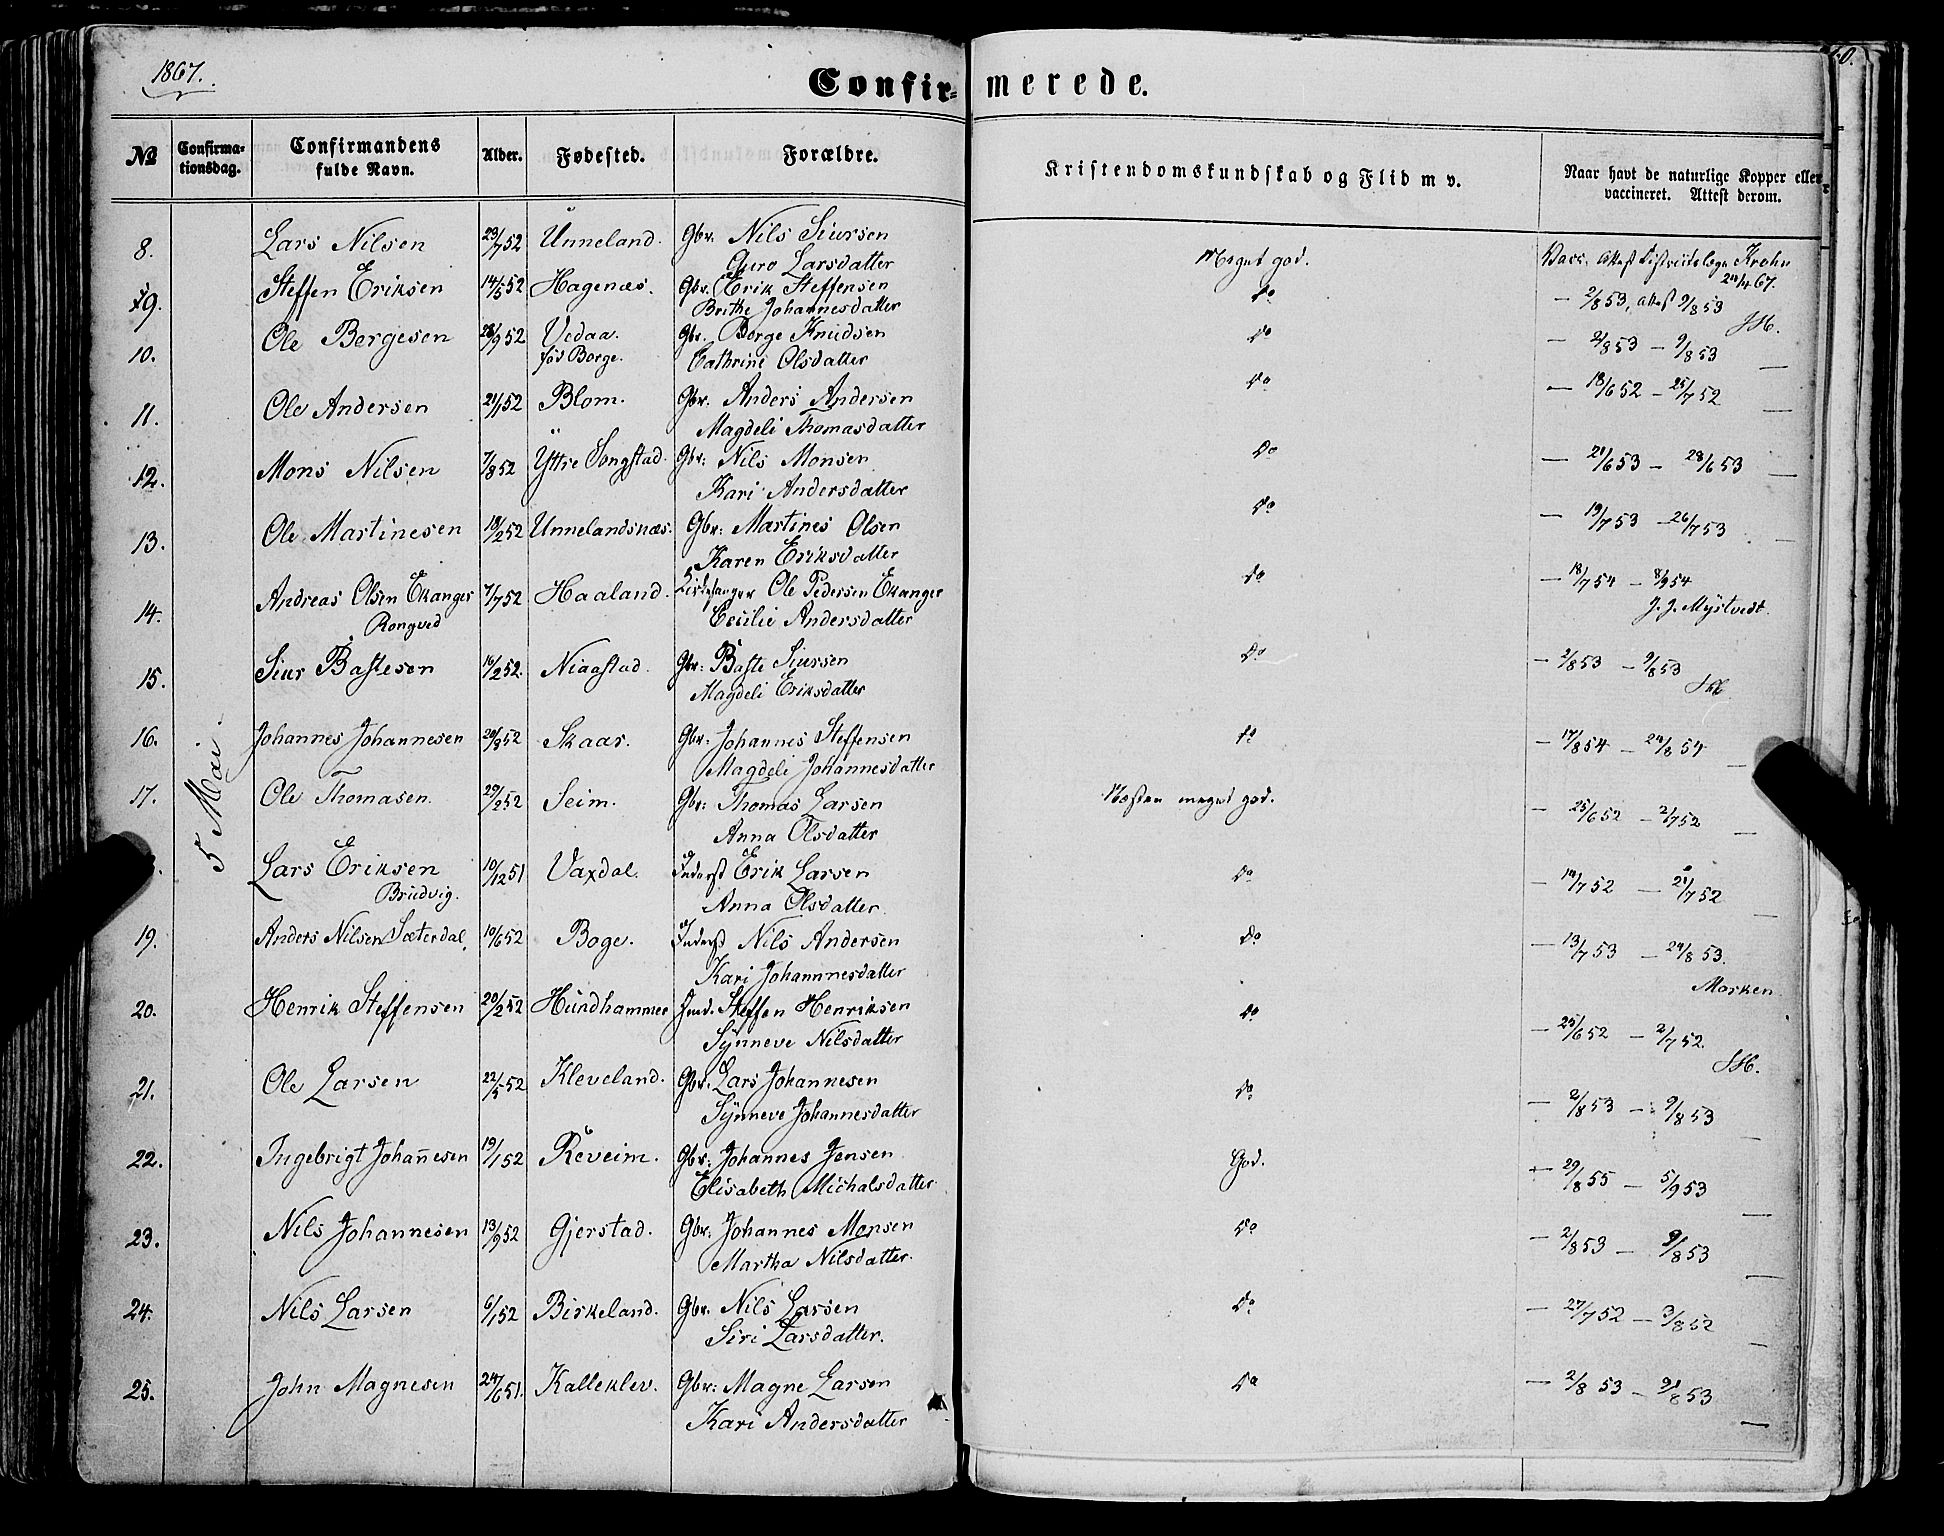 1867.
Confirmerede.
№ Confirmationsdag. Confirmandens fulde Navn. Alder. Fødested. Forældre. Kristendomskundskab og Flid m v. Naar havt de naturlige Kopper eller vaccineret. Attest derom.
5 Mai.
8. Lars Nilsen 23/7 52 Unneland. Gbr. Nils Siursen Meget god. Vacc. Attest Districtslæge Krohn
Guro Larsdatter 24/4 67.
9. Steffen Eriksen 14/5 52 Hagenæs. Gbr. Erik Steffensen Do — 2/8 53, attest 9/8 53
Brithe Johannesdatter
10. Ole Bergesen 28/9 52 Vedaa. Gbr. Berge Knudsen Do — 2/8 53 — 9/8 53
fød Borge. Cathrine Olsdatter
11. Ole Andersen 21/1 52 Blom. Gbr. Anders Andersen Do — 18/6 52 — 25/7 52
Magdeli Thomasdatter
12. Mons Nilsen 7/8 52 Yttre Songstad. Gbr: Nils Monsen Do — 21/6 53 — 28/6 53
Kari Andersdatter
13. Ole Martinesen 18/2 52 Unnelandsnæs. Gbr: Martines Olsen Do — 19/7 53 — 26/7 53
Karen Eriksdatter
14. Andreas Olsen Ekanger 7/7 52 Haaland. Kirkesanger Ole Pedersen Ekanger Do — 18/7 54 — 8/9 54
Rongved Cecilie Andersdatter J. J. Mÿstvedt.
15. Siur Bastesen 16/2 52. Niaastad. Gbr: Baste Siursen Do — 2/8 53 — 9/8 53
Magdeli Eriksdatter
16. Johannes Johannesen 20/8 52 Skaar. Gbr. Johannes Steffensen Do — 17/8 54 — 24/8 54
Magdeli Johannesdatter
17. Ole Thomasen. 29/2 52 Seim. Gbr: Thomas Larsen Næsten meget god. — 25/6 52 — 2/7 52
Anna Olsdatter
Lars Eriksen 10/12 51 Vaxdal. Inderst Erik Larsen Do — 14/7 52 — 21/7 52
Brudvig. Anna Olsdatter
19. Anders Nilsen Sæterdal, 10/6 52 Boge. Inderst Nils Andersen Do — 13/7 53 — 24/8 53.
Kari Johannnesdatter Morken
20. Henrik Steffensen 20/2 52 Hundhammer Gmd. Steffen Henriksen Do — 25/6 52 — 2/7 52.
Sÿnneve Nilsdatter
21. Ole Larsen 22/5 52 Kleveland. Gbr. Lars Johannesen Do — 2/8 53 — 9/8 53
Sÿnneve Johannesdatter
22. Ingebrigt Johan̄esen 19/1 52 Reveim. Gbr: Johannes Jensen God. — 29/8 55 — 5/9 53
Elisabeth Michalsdatter
23. Nils Johannesen 13/9 52 Gjerstad. Gbr. Johannes Monsen Do — 2/8 53 — 9/8 53
Martha Nilsdatter.
24. Nils Larsen 6/1 52 Birkeland. Gbr. Nils Larsen Do — 27/7 52 — 3/8 52
Siri Larsdatter.
25. John Magnesen 24/6 51. Kalleklev. Gbr. Magne Larsen Do — 2/8 53 — 9/8 53
Kari Andersdatter